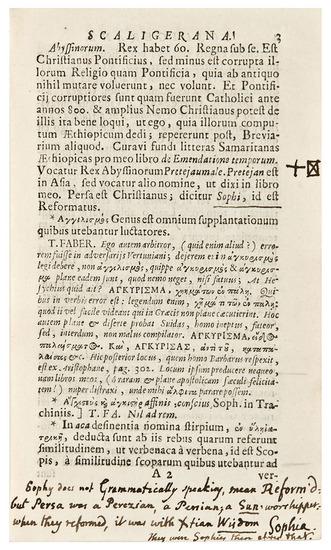 SCALIGERANA. 3
Abyssinorum. Rex habet 60. Regna sub se. Est
Christianus Pontificius, sed minus est corrupta il-
lorum Religio quam Pontificia, quia ab antiquo
nihil mutare voluerunt, nec volunt. Et Pontifi-
cij corruptiores sunt quam fuerunt Catholici ante
annos 800. & amplius Nemo Christianus potest de
illis ita bene loqui, ut ego, quia illorum compu-
tum Æthiopicum dedi; repererunt post, Brevia-
rium aliquod. Curavi fundi litteras Samaritanas
Æthiopicas pro meo libro de Emendatione temporum.
Vocatur Rex Abyssinorum Pretejaumale. Pretejan est
in Asia, sed vocatur alio nomine, ut dixi in libro
meo. Persa est Christianus; dicitur Sophi, id est
Reformatus.
* Αγγιλισμὸς Genus est omnium supplantationum
quibus utebantur luctatores.
T. FABER. Ego autem arbitror, ( quid enim aliud ? ) erro-
rem fuisse in adversarijs Vertuniani, dejerem
legi debere, non
plane eadem sunt, quod nemo neget, nisi fatuus. At He-
sychius quid ait? ΑΓΚΥΡΙΣΜΑ, Qui-
bus in verbis error est: legendum enim,
quod is vel facile videant qui in Græcis non plane cæcutierint. Hoc
autem plane & diserte probat Suidas, homo ineptus, fateor,
sed, interdum, non malus compilator. ΑΓΚΥΡΙΣΜΑ,
ΑΓΚΥΡΙΣΑΣ,
Hic posterior locus, quem homo Barbarus respexit,
est ex Aristophane, pag. 302. Locum ipsum producere nequeo,
nam libros meos, (ô raram & plane apostolicam sæculi felicita-
tem!) nuper distraxi, unde mihi parare possem.
affinis Soph. in Tra-
chiniis. ] T. FA. Nil ad rem.
* In aca desinentia nomina stirpium,
deducta sunt ab iis rebus quarum referunt
similitudinem, ut verbenaca à verbena, id est Sco-
pis, à similitudine scoparum quibus utebantur ad
A 2 ver-
Sophy does not Grammatically speaking, mean Reform'd:
but Persa was a Persian, a Sun-worshipper
when they reformed, it was with Xtian Wisdom Sophia.
They were Sophies then